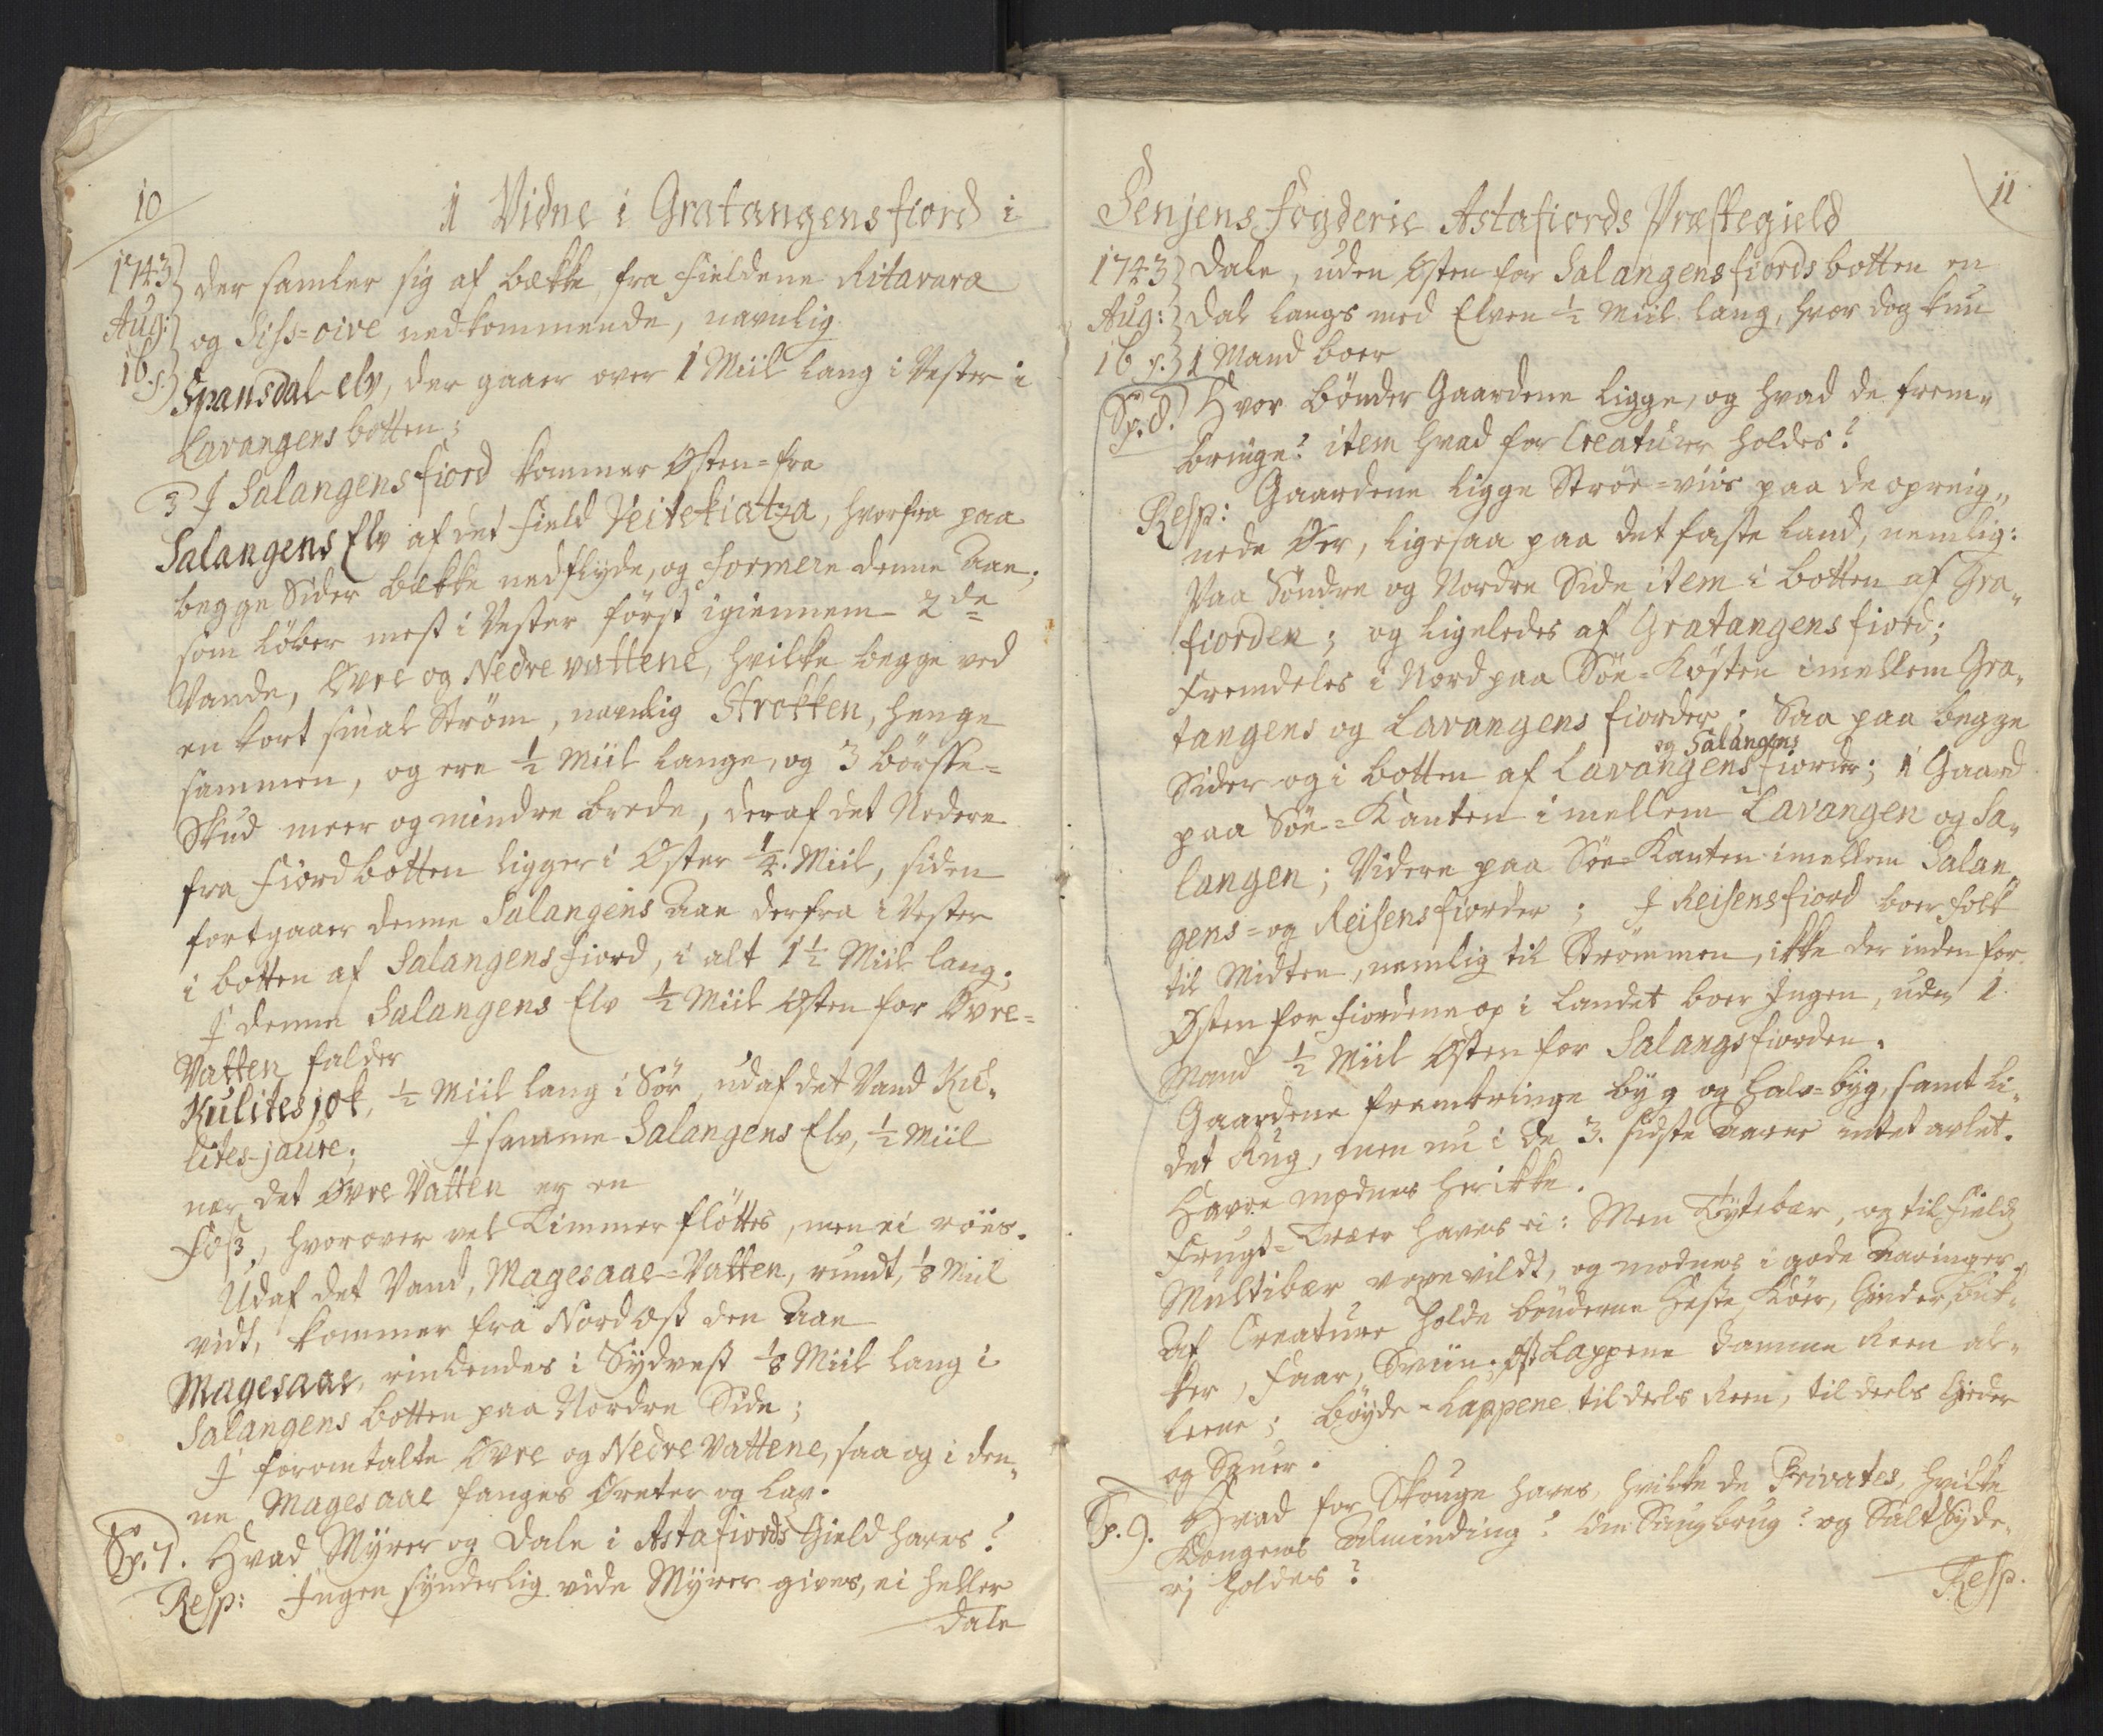 10
1 Vidne i Gratangensfiord i
1743 der samler sig af bække fra fieldene Ritavara
Aug: og Siss-oive nedkommende, navnlig
16.s. Spansdal-elv, der gaaer over 1 Miil lang i Vester i
Lavangens botten;
3 J Salangens fiord kommer Østen-fra
Salangens Elv af det field Veitekiatza, hvorfra paa
begge Sider bække nedflyde, og formere denne Aae;
som løber mest i Vester først igiennem 2de
Vande, Øvre og Nedre vattene, hvilke begge ved
en kort smal Strøm, navnlig Strokken, henge
sammen, og ere ½ Miil lange, og 3 börsse-
Skud meer og mindre brede, deraf det Nedere
fra fiordbotten ligger i Øster ¼. Miil, siden
fortgaaer denne Salangens Aae derfra i Vester
i botten af Salangens fiord, i alt 1½ Miil lang;
J denne Salangens Elv ½ Miil Østen for Øvre-
Vatten falder
Kulitesjok, ½ Miil lang i Sør, udaf det Vand Ku-
lites-jaure; J samme Salangens Elv, ½ Miil
nær det Øvre Vatten er en
Foss, hvorover vel Timmer fløttes, men ei röes.
Udaf det Vand, Magesaae-Vatten, rundt, ⅛ Miil
vidt, kommer fra Nordost den Aae
Magesaae, rindendes i Sydvest ⅛ Miil lang i
Salangens botten paa Nordre Side;
J foromtalte Øvre og Nedre Vattene, saa og i den-
ne Magesaae fanges Ørreter og Lax.
Sp. 7. Hvad Myrer og Dale i Astafiords Gield haves?
Resp: Ingen synderlig vide Myrer gives, ei heller
Dale
11
Senjens Fogderie Astafiords Præstegield
1743 Dale, uden Østen for Salangensfiordsbotten en
Aug: Dal langs med Elven ½ Miil lang, hvor dog kun
16 s. 1 Mand boer
Sp. 8. Hvor bönder Gaardene ligge, og hvad de frem-
bringe? item hvad for Creaturer holdes?
Resp: Gaardene ligge Ströe-viis paa de opreig-
nede Øer, ligesaa paa det faste land, nemlig:
Paa Söndre og Nordre Side item i botten af Gra-
fiorden; og ligeledes af Gratangens fiord;
fremdeles i Nord paa Söe-Kösten imellem Gra-
tangens og Lavangens fiorder; Saa paa begge
og Salangens
Sider og i botten af Lavangens fiorder; 1 Gaard
paa Söe-Kanten imellem Lavangen og Sa-
langen; Videre paa Söe-Kanten imellem Salan-
gens- og Reisensfiorder; J Reisensfiord boer folk
til Midten, nemlig til Strømmen, ikke der inden for
Østen for fiordene op i landet boer Ingen, uden 1
Mand ½ Miil Østen for Salangsfiorden.
Gaardene frembringe byg og halv-byg, samt li-
det Rug, men nu i de 3. sidste Aarer intet avlet.
Havre modnes her ikke.
Frugt-Træer haves ei: Men Tytebær, og til fields
Multibær voxe vildt, og modnes i gode Aaringer.
Af Creature holde bönderne Heste, Köer, Gieder, buk-
ker, Faar, Sviin; Øst Lappene tamme Reen al-
leene; Böyde-Lappene til deels Reen, til deels Gieder
og Sauer.
Sp. 9. Hvad for Skouge haves, hvilke de Privates, hvilke
Kongens Alminding? Om Saugbrug? og Saltsyde-
rj holdes?
Resp.